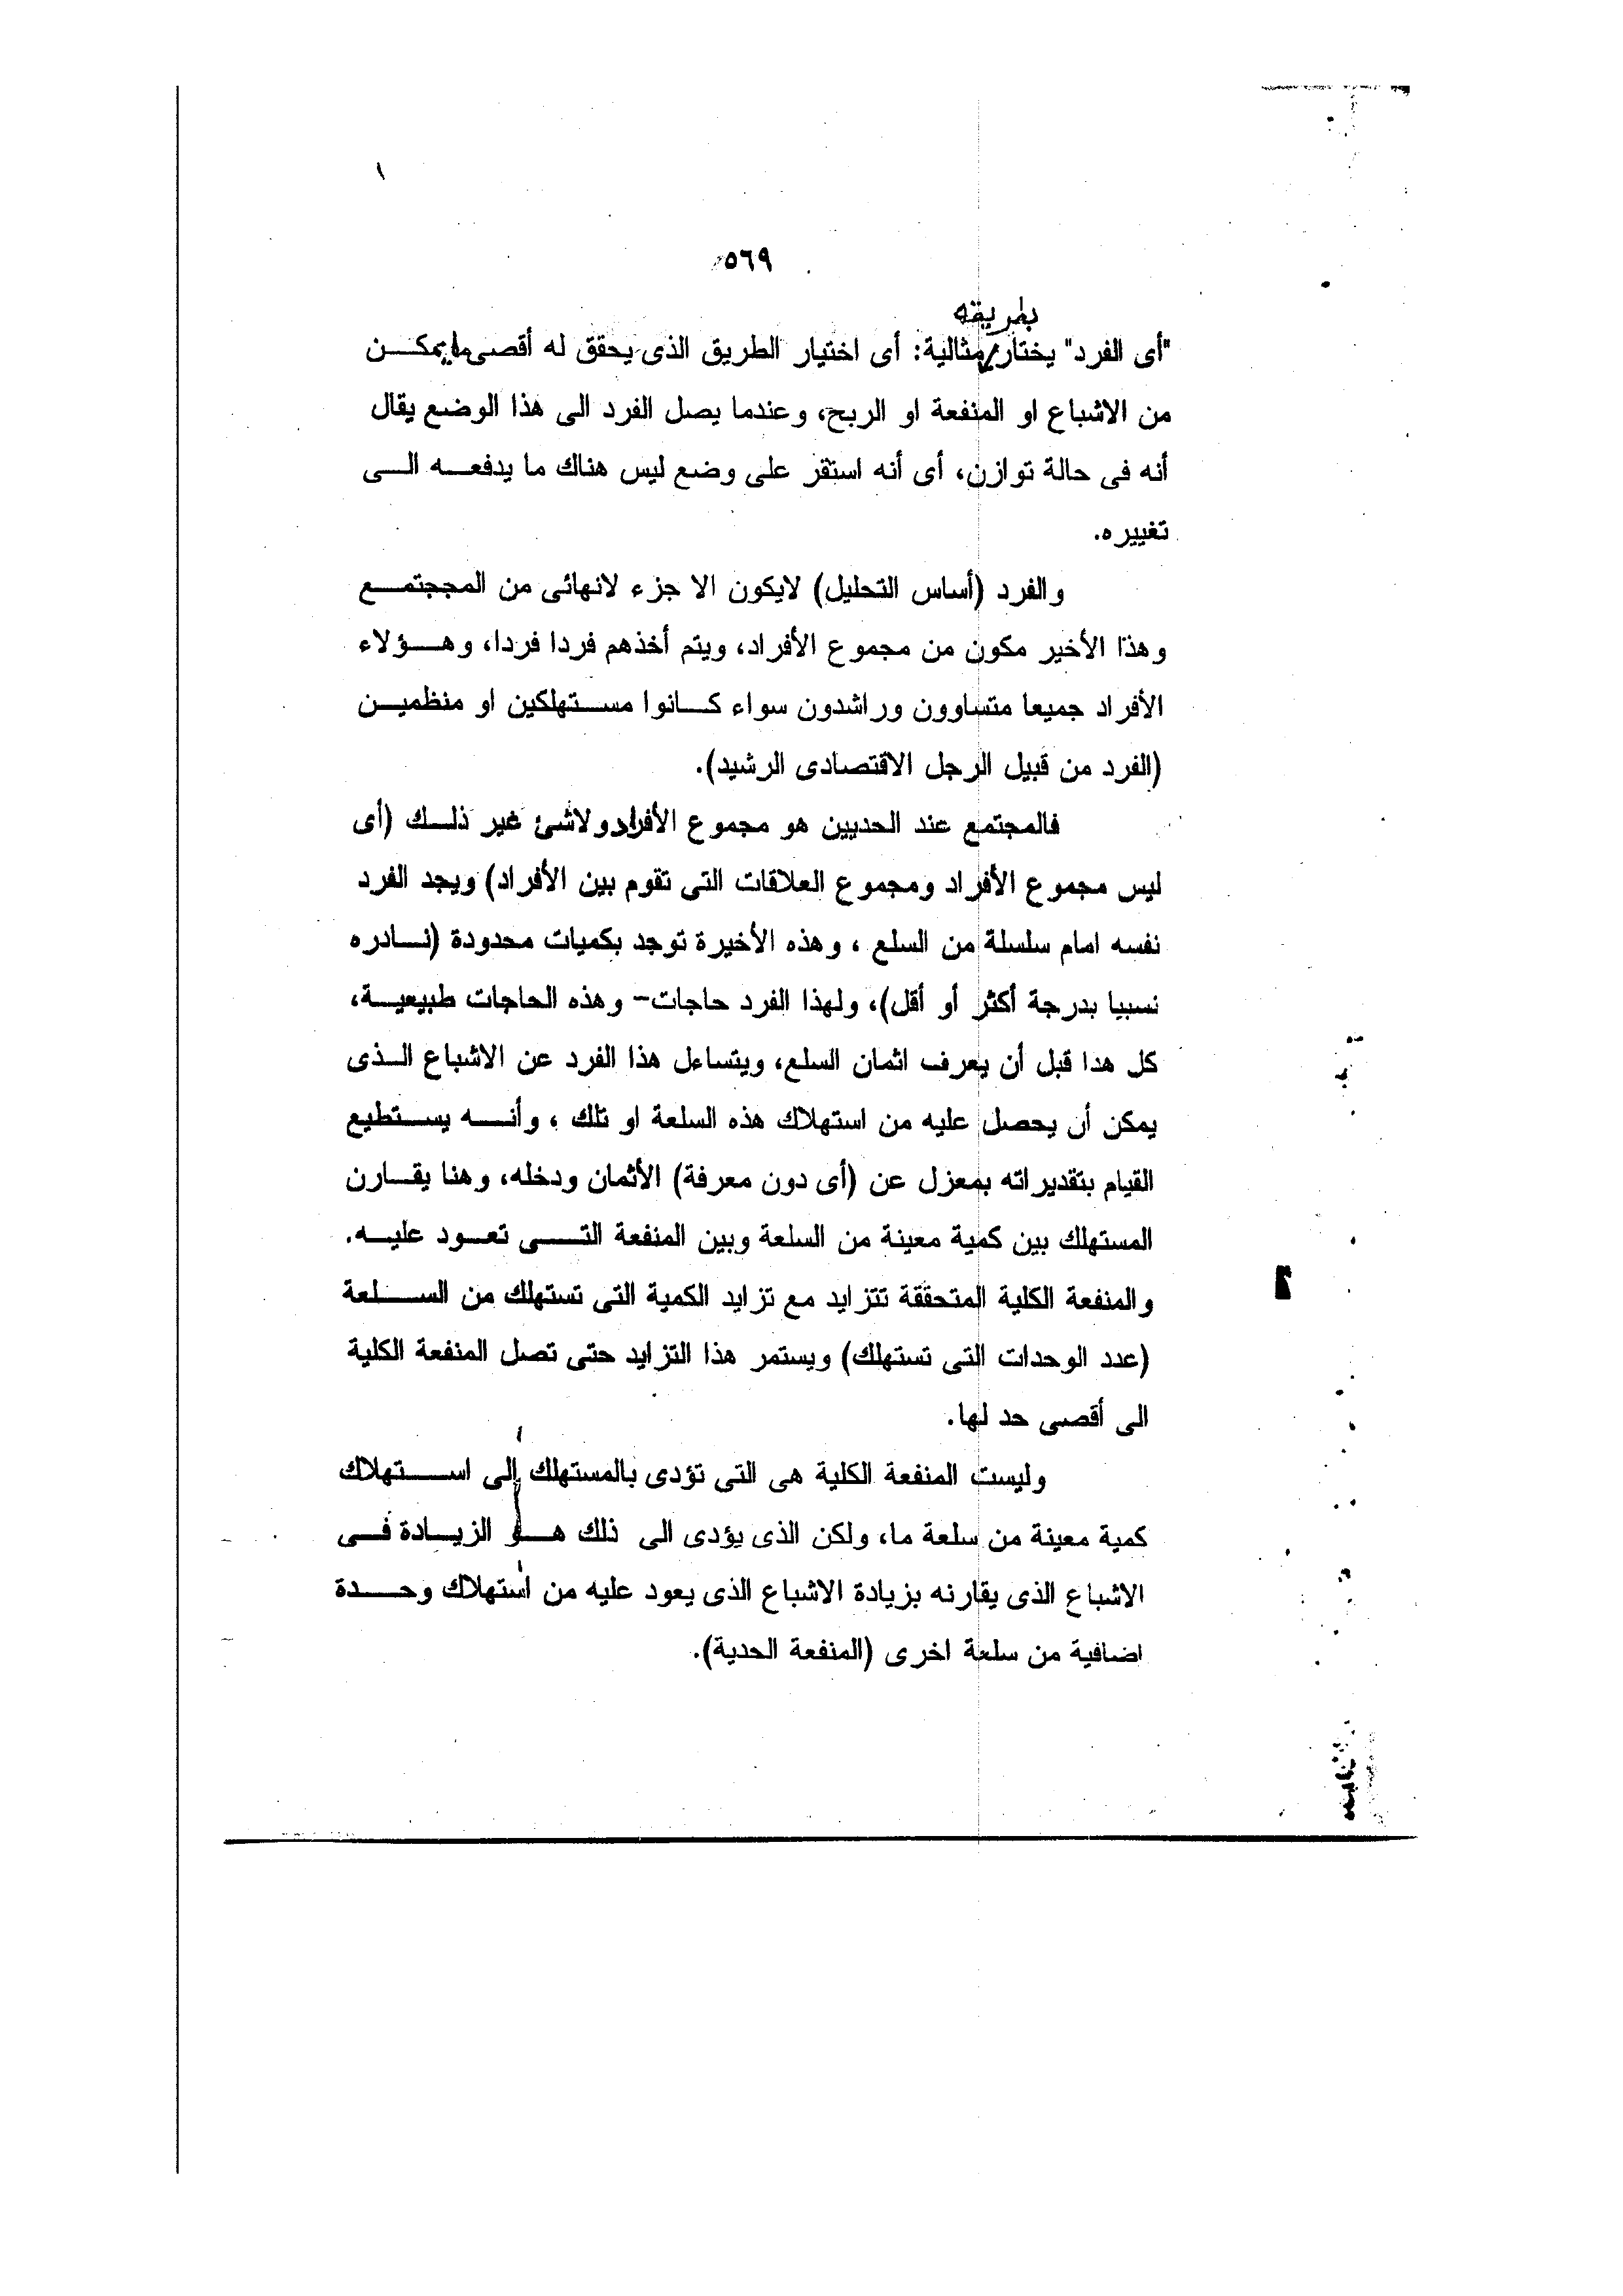 ٥٦٩
بطريقه
"أى الفرد" يختار مثالية: أى اختيار الطريق الذى يحقق له أقصى ما يمكن
من الاشباع او المنفعة او الربح، وعندما يصل الفرد الى هذا الوضع يقال
أنه فى حالة توازن، أى أنه استقر على وضع ليس هناك ما يدفعه الى
تغييره.
والفرد (أساس التحليل) لايكون الا جزء لانهائى من المججتمع
وهذا الأخير مكون من مجموع الأفراد، ويتم أخذهم فردا فردا، وهؤلاء
الأفراد جميعا متساوون وراشدون سواء كانوا مستهلكين او منظمين
(الفرد من قبيل الرجل الاقتصادى الرشيد).
فالمجتمع عند الحديين هو مجموع الأفراد ولاشئ غير ذلك (أى
ليس مجموع الأفراد ومجموع العلاقات التى تقوم بين الأفراد) ويجد الفرد
نفسه امام سلسلة من السلع ، وهذه الأخيرة توجد بكميات محدودة (نادره
نسبيا بدرجة أكثر أو أقل)، ولهذا الفرد حاجات- وهذه الحاجات طبيعية،
كل هدا قبل أن يعرف اثمان السلع، ويتساءل هذا الفرد عن الاشباع الذى
يمكن أن يحصل عليه من استهلاك هذه السلعة او تلك ، وأنه يستطيع
القيام بتقديراته بمعزل عن (أى دون معرفة) الأثمان ودخله، وهنا يقارن
المستهلك بين كمية معينة من السلعة وبين المنفعة التى تعود عليه.
والمنفعة الكلية المتحققة تتزايد مع تزايد الكمية التى تستهلك من السلعة
(عدد الوحدات التى تستهلك) ويستمر هذا التزايد حتى تصل المنفعة الكلية
الى أقصى حد لها.
وليست المنفعة الكلية هى التى تؤدى بالمستهلك إلى استهلاك
كمية معينة من سلعة ما، ولكن الذى يؤدى الى ذلك هو الزيادة فى
الاشباع الذى يقارنه بزيادة الاشباع الذى يعود عليه من استهلاك وحدة
اضافية من سلعة اخرى (المنفعة الحدية).